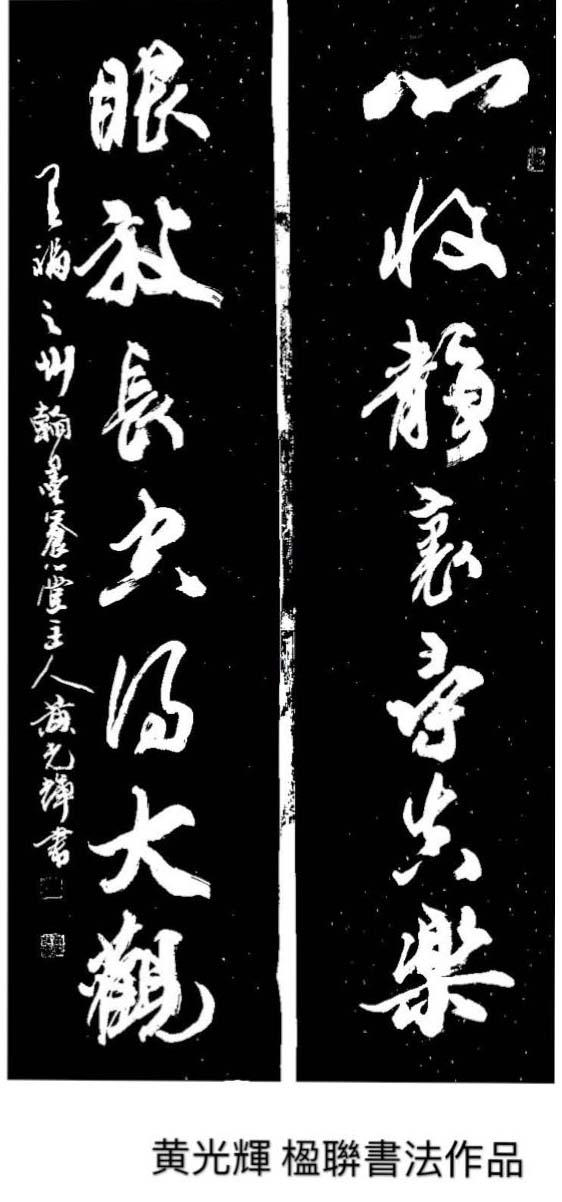 心收靜裏尋真樂
眼放長空得大觀
翰墨養心堂主人黃光輝書
黄光輝 楹聯書法作品